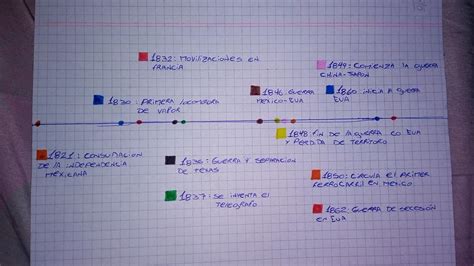 1832: MOVILIZACIONES EN
FRANCIA
1894: COMIENZA LA GUERRA
CHINA-JAPON
1830: PRIMERA LOCOMOTORA
DE VAPOR
1846: GUERRA
MEXICO-EUA
1860: INICIA GUERRA
EUA
1848: FIN DE LA GUERRA. CO EUA
Y PERDIDA DE TERRITORO
1821: CONSUMACION
DE LA INDEPENDENCIA
MEXICANA
1836: GUERRA Y SEPARACION
DE TEXAS
1837: SE INVENTA EL
TELEGRAFO
1850: CIRCULA EL PRIMER
FERROCARRIL EN MEXICO
1862: GUERRA DE SECESIÓN
EN EUA